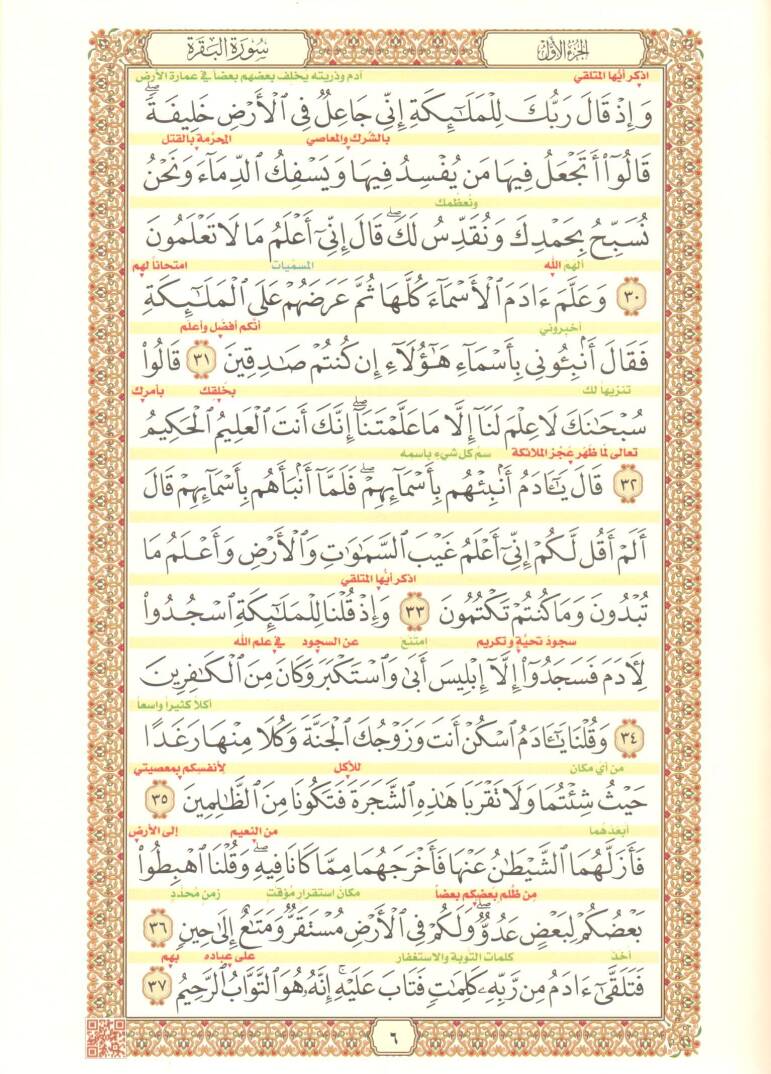 الجزء الأول
سورة البقرة
اذكر أيها المتلقي آدم وذريته يخلف بعضهم بعضاً في عمارة الأرض
وَإِذْ قَالَ رَبُّكَ لِلْمَلَـٰٓئِكَةِ إِنِّى جَاعِلٌ فِى ٱلْأَرْضِ خَلِيفَةً ۖ
بالشرك والمعاصي المحرمة بالقتل
قَالُوٓا۟ أَتَجْعَلُ فِيهَا مَن يُفْسِدُ فِيهَا وَيَسْفِكُ ٱلدِّمَآءَ وَنَحْنُ
ونعظمك
نُسَبِّحُ بِحَمْدِكَ وَنُقَدِّسُ لَكَ ۖ قَالَ إِنِّىٓ أَعْلَمُ مَا لَا تَعْلَمُونَ
ألهم الله المسميات امتحاناً لهم
٣٠ وَعَلَّمَ ءَادَمَ ٱلْأَسْمَآءَ كُلَّهَا ثُمَّ عَرَضَهُمْ عَلَى ٱلْمَلَـٰٓئِكَةِ
أخبروني أنكم أفضل وأعلم
فَقَالَ أَنۢبِـُٔونِى بِأَسْمَآءِ هَـٰٓؤُلَآءِ إِن كُنتُمْ صَـٰدِقِينَ ٣١ قَالُوا۟
تنزيهاً لك بخلقك بأمرك
سُبْحَـٰنَكَ لَا عِلْمَ لَنَآ إِلَّا مَا عَلَّمْتَنَآ ۖ إِنَّكَ أَنتَ ٱلْعَلِيمُ ٱلْحَكِيمُ
تعالى لما ظهر عجز الملائكة سم كل شيء باسمه
٣٢ قَالَ يَـٰٓـَٔادَمُ أَنۢبِئْهُم بِأَسْمَآئِهِمْ ۖ فَلَمَّآ أَنۢبَأَهُم بِأَسْمَآئِهِمْ قَالَ
أَلَمْ أَقُل لَّكُمْ إِنِّىٓ أَعْلَمُ غَيْبَ ٱلسَّمَـٰوَٰتِ وَٱلْأَرْضِ وَأَعْلَمُ مَا
اذكر أيها المتلقي
تُبْدُونَ وَمَا كُنتُمْ تَكْتُمُونَ ٣٣ وَإِذْ قُلْنَا لِلْمَلَـٰٓئِكَةِ ٱسْجُدُوا۟
سجود تحية وتكريم امتنع عن السجود في علم الله
لِـَٔادَمَ فَسَجَدُوٓا۟ إِلَّآ إِبْلِيسَ أَبَىٰ وَٱسْتَكْبَرَ وَكَانَ مِنَ ٱلْكَـٰفِرِينَ
أكلاً كثيراً واسعاً
٣٤ وَقُلْنَا يَـٰٓـَٔادَمُ ٱسْكُنْ أَنتَ وَزَوْجُكَ ٱلْجَنَّةَ وَكُلَا مِنْهَا رَغَدًا
من أي مكان للأكل لأنفسكم بمعصيتي
حَيْثُ شِئْتُمَا وَلَا تَقْرَبَا هَـٰذِهِ ٱلشَّجَرَةَ فَتَكُونَا مِنَ ٱلظَّـٰلِمِينَ ٣٥
أبعدهما من النعيم إلى الأرض
فَأَزَلَّهُمَا ٱلشَّيْطَـٰنُ عَنْهَا فَأَخْرَجَهُمَا مِمَّا كَانَا فِيهِ ۖ وَقُلْنَا ٱهْبِطُوا۟
من ظلم بعضكم بعضاً مكان استقرار مؤقت زمن محدد
بَعْضُكُمْ لِبَعْضٍ عَدُوٌّ ۖ وَلَكُمْ فِى ٱلْأَرْضِ مُسْتَقَرٌّ وَمَتَـٰعٌ إِلَىٰ حِينٍ ٣٦
أخذ كلمات التوبة والاستغفار على عباده بهم
فَتَلَقَّىٰٓ ءَادَمُ مِن رَّبِّهِۦ كَلِمَـٰتٍ فَتَابَ عَلَيْهِ ۚ إِنَّهُۥ هُوَ ٱلتَّوَّابُ ٱلرَّحِيمُ ٣٧
٦